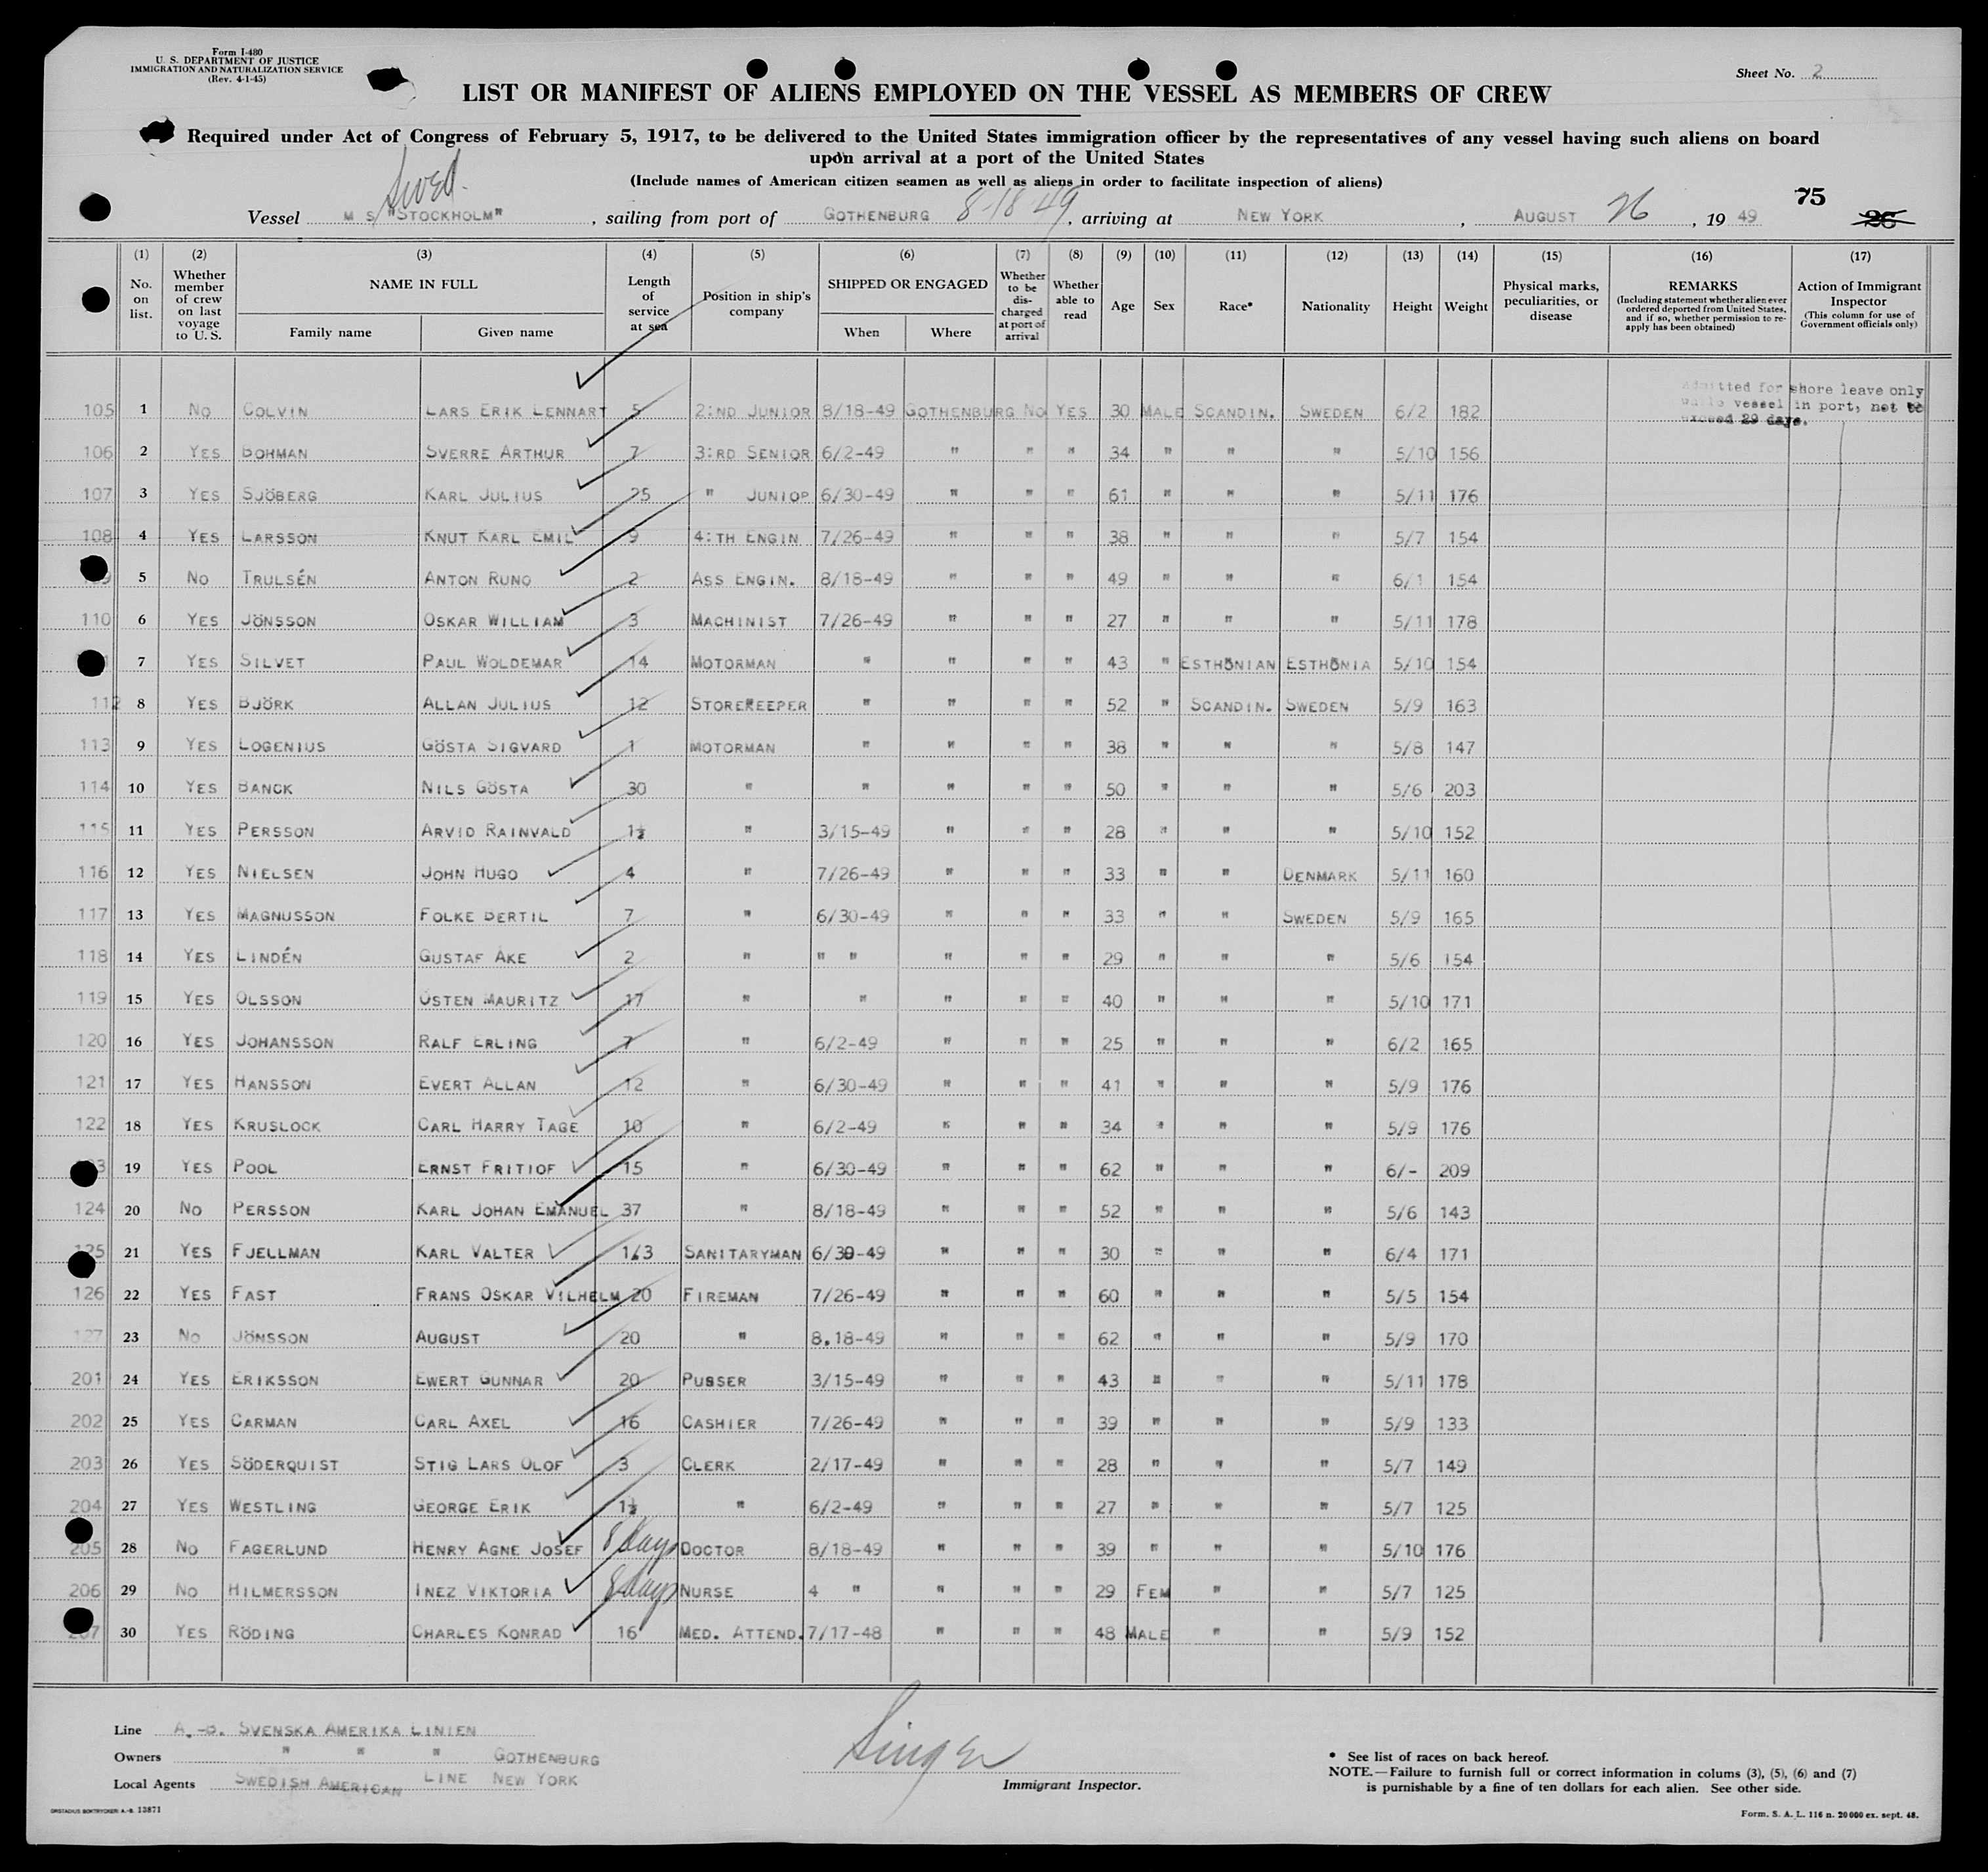 Form I-480
U. S. DEPARTMENT OF JUSTICE
IMMIGRATION AND NATURALIZATION SERVICE
(Rev. 4-1-45)
Sheet No. 2
LIST OR MANIFEST OF ALIENS EMPLOYED ON THE VESSEL AS MEMBERS OF CREW
Required under Act of Congress of February 5, 1917, to be delivered to the United States immigration officer by the representatives of any vessel having such aliens on board
upon arrival at a port of the United States
(Include names of American citizen seamen as well as aliens in order to facilitate inspection of aliens)
Swed.
75
Vessel M S "STOCKHOLM", sailing from port of GOTHENBURG 8-18-49, arriving at NEW YORK, AUGUST 26, 19 49
26
(1) (2) (3) (4) (5) (6) (7) (8) (9) (10) (11) (12) (13) (14) (15) (16) (17)
No. on list. Whether member of crew on last voyage to U. S. NAME IN FULL Family name Given name Length of service at sea Position in ship's company SHIPPED OR ENGAGED When Where Whether to be discharged at port of arrival Whether able to read Age Sex Race* Nationality Height Weight Physical marks, peculiarities, or disease REMARKS (Including statement whether alien ever ordered deported from United States, and if so, whether permission to re-apply has been obtained) Action of Immigrant Inspector (This column for use of Government officials only)
Admitted for shore leave only
while vessel in port, not to
exceed 29 days.
105 1 NO COLVIN LARS ERIK LENNART 5 2:ND JUNIOR 8/18-49 GOTHENBURG NO YES 30 MALE SCANDIN. SWEDEN 6/2 182
106 2 YES BOHMAN SVERRE ARTHUR 7 3:RD SENIOR 6/2-49 " " " 34 " " " 5/10 156
107 3 YES SJÖBERG KARL JULIUS 25 " JUNIOP 6/30-49 " " " 61 " " " 5/11 176
108 4 YES LARSSON KNUT KARL EMIL 9 4:TH ENGIN 7/26-49 " " " 38 " " " 5/7 154
9 5 NO TRULSÉN ANTON RUNO 2 ASS ENGIN. 8/18-49 " " " 49 " " " 6/1 154
110 6 YES JÖNSSON OSKAR WILLIAM 3 MACHINIST 7/26-49 " " " 27 " " " 5/11 178
7 YES SILVET PAUL WOLDEMAR 14 MOTORMAN " " " " 43 " ESTHONIAN ESTHONIA 5/10 154
112 8 YES BJÖRK ALLAN JULIUS 12 STOREKEEPER " " " " 52 " SCANDIN. SWEDEN 5/9 163
113 9 YES LOGENIUS GÖSTA SIGVARD 1 MOTORMAN " " " " 38 " " " 5/8 147
114 10 YES BANCK NILS GÖSTA 30 " " " " " 50 " " " 5/6 203
115 11 YES PERSSON ARVID RAINVALD 1½ " 3/15-49 " " " 28 " " " 5/10 152
116 12 YES NIELSEN JOHN HUGO 4 " 7/26-49 " " " 33 " " DENMARK 5/11 160
117 13 YES MAGNUSSON FOLKE BERTIL 7 " 6/30-49 " " " 33 " " SWEDEN 5/9 165
118 14 YES LINDÉN GUSTAF ÅKE 2 " " " " " " 29 " " " 5/6 154
119 15 YES OLSSON ÖSTEN MAURITZ 17 " " " " " 40 " " " 5/10 171
120 16 YES JOHANSSON RALF ERLING 7 " 6/2-49 " " " 25 " " " 6/2 165
121 17 YES HANSSON EVERT ALLAN 12 " 6/30-49 " " " 41 " " " 5/9 176
122 18 YES KRUSLOCK CARL HARRY TAGE 10 " 6/2-49 " " " 34 " " " 5/9 176
3 19 YES POOL ERNST FRITIOF 15 " 6/30-49 " " " 62 " " " 6/- 209
124 20 NO PERSSON KARL JOHAN EMANUEL 37 " 8/18-49 " " " 52 " " " 5/6 143
125 21 YES FJELLMAN KARL VALTER 1/3 SANITARYMAN 6/30-49 " " " 30 " " " 6/4 171
126 22 YES FAST FRANS OSKAR VILHELM 20 FIREMAN 7/26-49 " " " 60 " " " 5/5 154
127 23 NO JÖNSSON AUGUST 20 " 8.18-49 " " " 62 " " " 5/9 170
201 24 YES ERIKSSON EWERT GUNNAR 20 PUSSER 3/15-49 " " " 43 " " " 5/11 178
202 25 YES CARMAN CARL AXEL 16 CASHIER 7/26-49 " " " 39 " " " 5/9 133
203 26 YES SÖDERQUIST STIG LARS OLOF 3 CLERK 2/17-49 " " " 28 " " " 5/7 149
204 27 YES WESTLING GEORGE ERIK 1½ " 6/2-49 " " " 27 " " " 5/7 125
205 28 NO FAGERLUND HENRY AGNE JOSEF 8 days DOCTOR 8/18-49 " " " 39 " " " 5/10 176
206 29 NO HILMERSSON INEZ VIKTORIA 8 days NURSE 4 " " " " 29 FEM " " 5/7 125
207 30 YES RÖDING CHARLES KONRAD 16 MED. ATTEND. 7/17-48 " " " 48 MALE " " 5/9 152
Line A.-B. SVENSKA AMERIKA LINIEN
Owners " " " GOTHENBURG
Local Agents SWEDISH AMERICAN LINE NEW YORK
Singer
Immigrant Inspector.
* See list of races on back hereof.
NOTE.—Failure to furnish full or correct information in colums (3), (5), (6) and (7)
is punishable by a fine of ten dollars for each alien. See other side.
ORSTADIUS BOKTRYCKERI A.-B. 13871
Form. S. A. L. 116 n. 20000 ex. sept. 48.